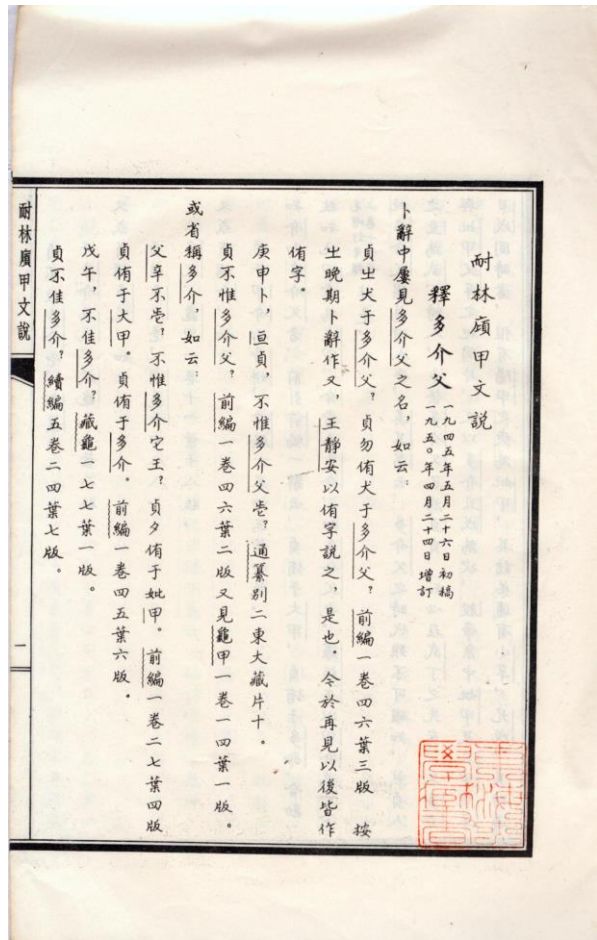 耐林廎甲文説
釋多介父
一九四五年五月二十六日初稿
一九五〇年四月二十四日增訂
卜辭中屢見多介父之名，如云：
貞㞢犬于多介父？貞勿侑犬于多介父？前編一卷四六葉三版 按
㞢晚期卜辭作又，王靜安以侑字説之，是也。今於再見以後皆作
侑字。
庚申卜，亘貞，不惟多介父𡆥？通纂別二東大藏片十。
貞不惟多介父？前編一卷四六葉二版又見龜甲一卷一四葉一版。
或省稱多介，如云：
父辛不𡆥？不惟多介它王？貞夕侑于妣甲。前編一卷二七葉四版
貞侑于大甲。貞侑于多介。前編一卷四五葉六版。
戊午，不隹多介？藏龜一七七葉一版。
貞不隹多介？續編五卷二四葉七版。
耐林廎甲文説
一